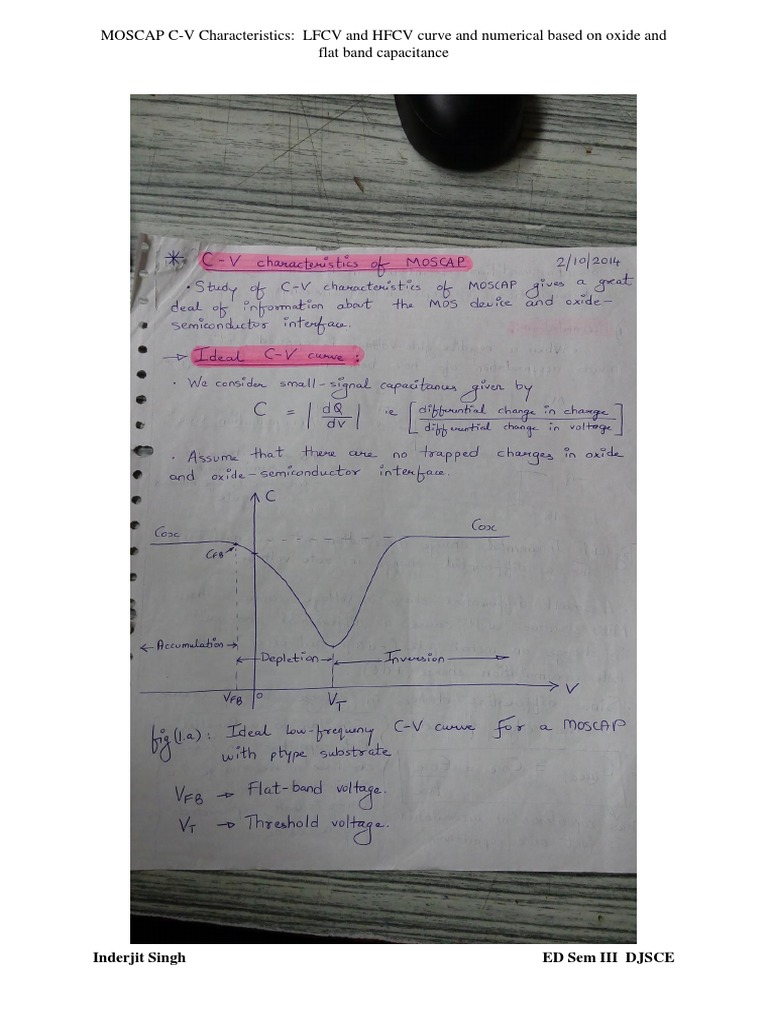 MOSCAP C-V Characteristics: LFCV and HFCV curve and numerical based on oxide and
flat band capacitance
* C-V characteristics of MOSCAP 2/10/2014
• Study of C-V characteristics of MOSCAP gives a great
deal of information about the MOS device and oxide-
semiconductor interface.
→ Ideal C-V curve:
• We consider small-signal capacitances given by
C = |dQ/dv| i.e [differential change in charge/differential change in voltage]
• Assume that there are no trapped charges in oxide
and oxide-semiconductor interface.
C
Cox Cox
CFB
← Accumulation → ← Depletion → ← Inversion →
VFB 0 VT V
fig(1.a): Ideal low-frequeny C-V curve for a MOSCAP
with ptype substrate
VFB → Flat-band voltage.
VT → Threshold voltage.
Inderjit Singh ED Sem III DJSCE